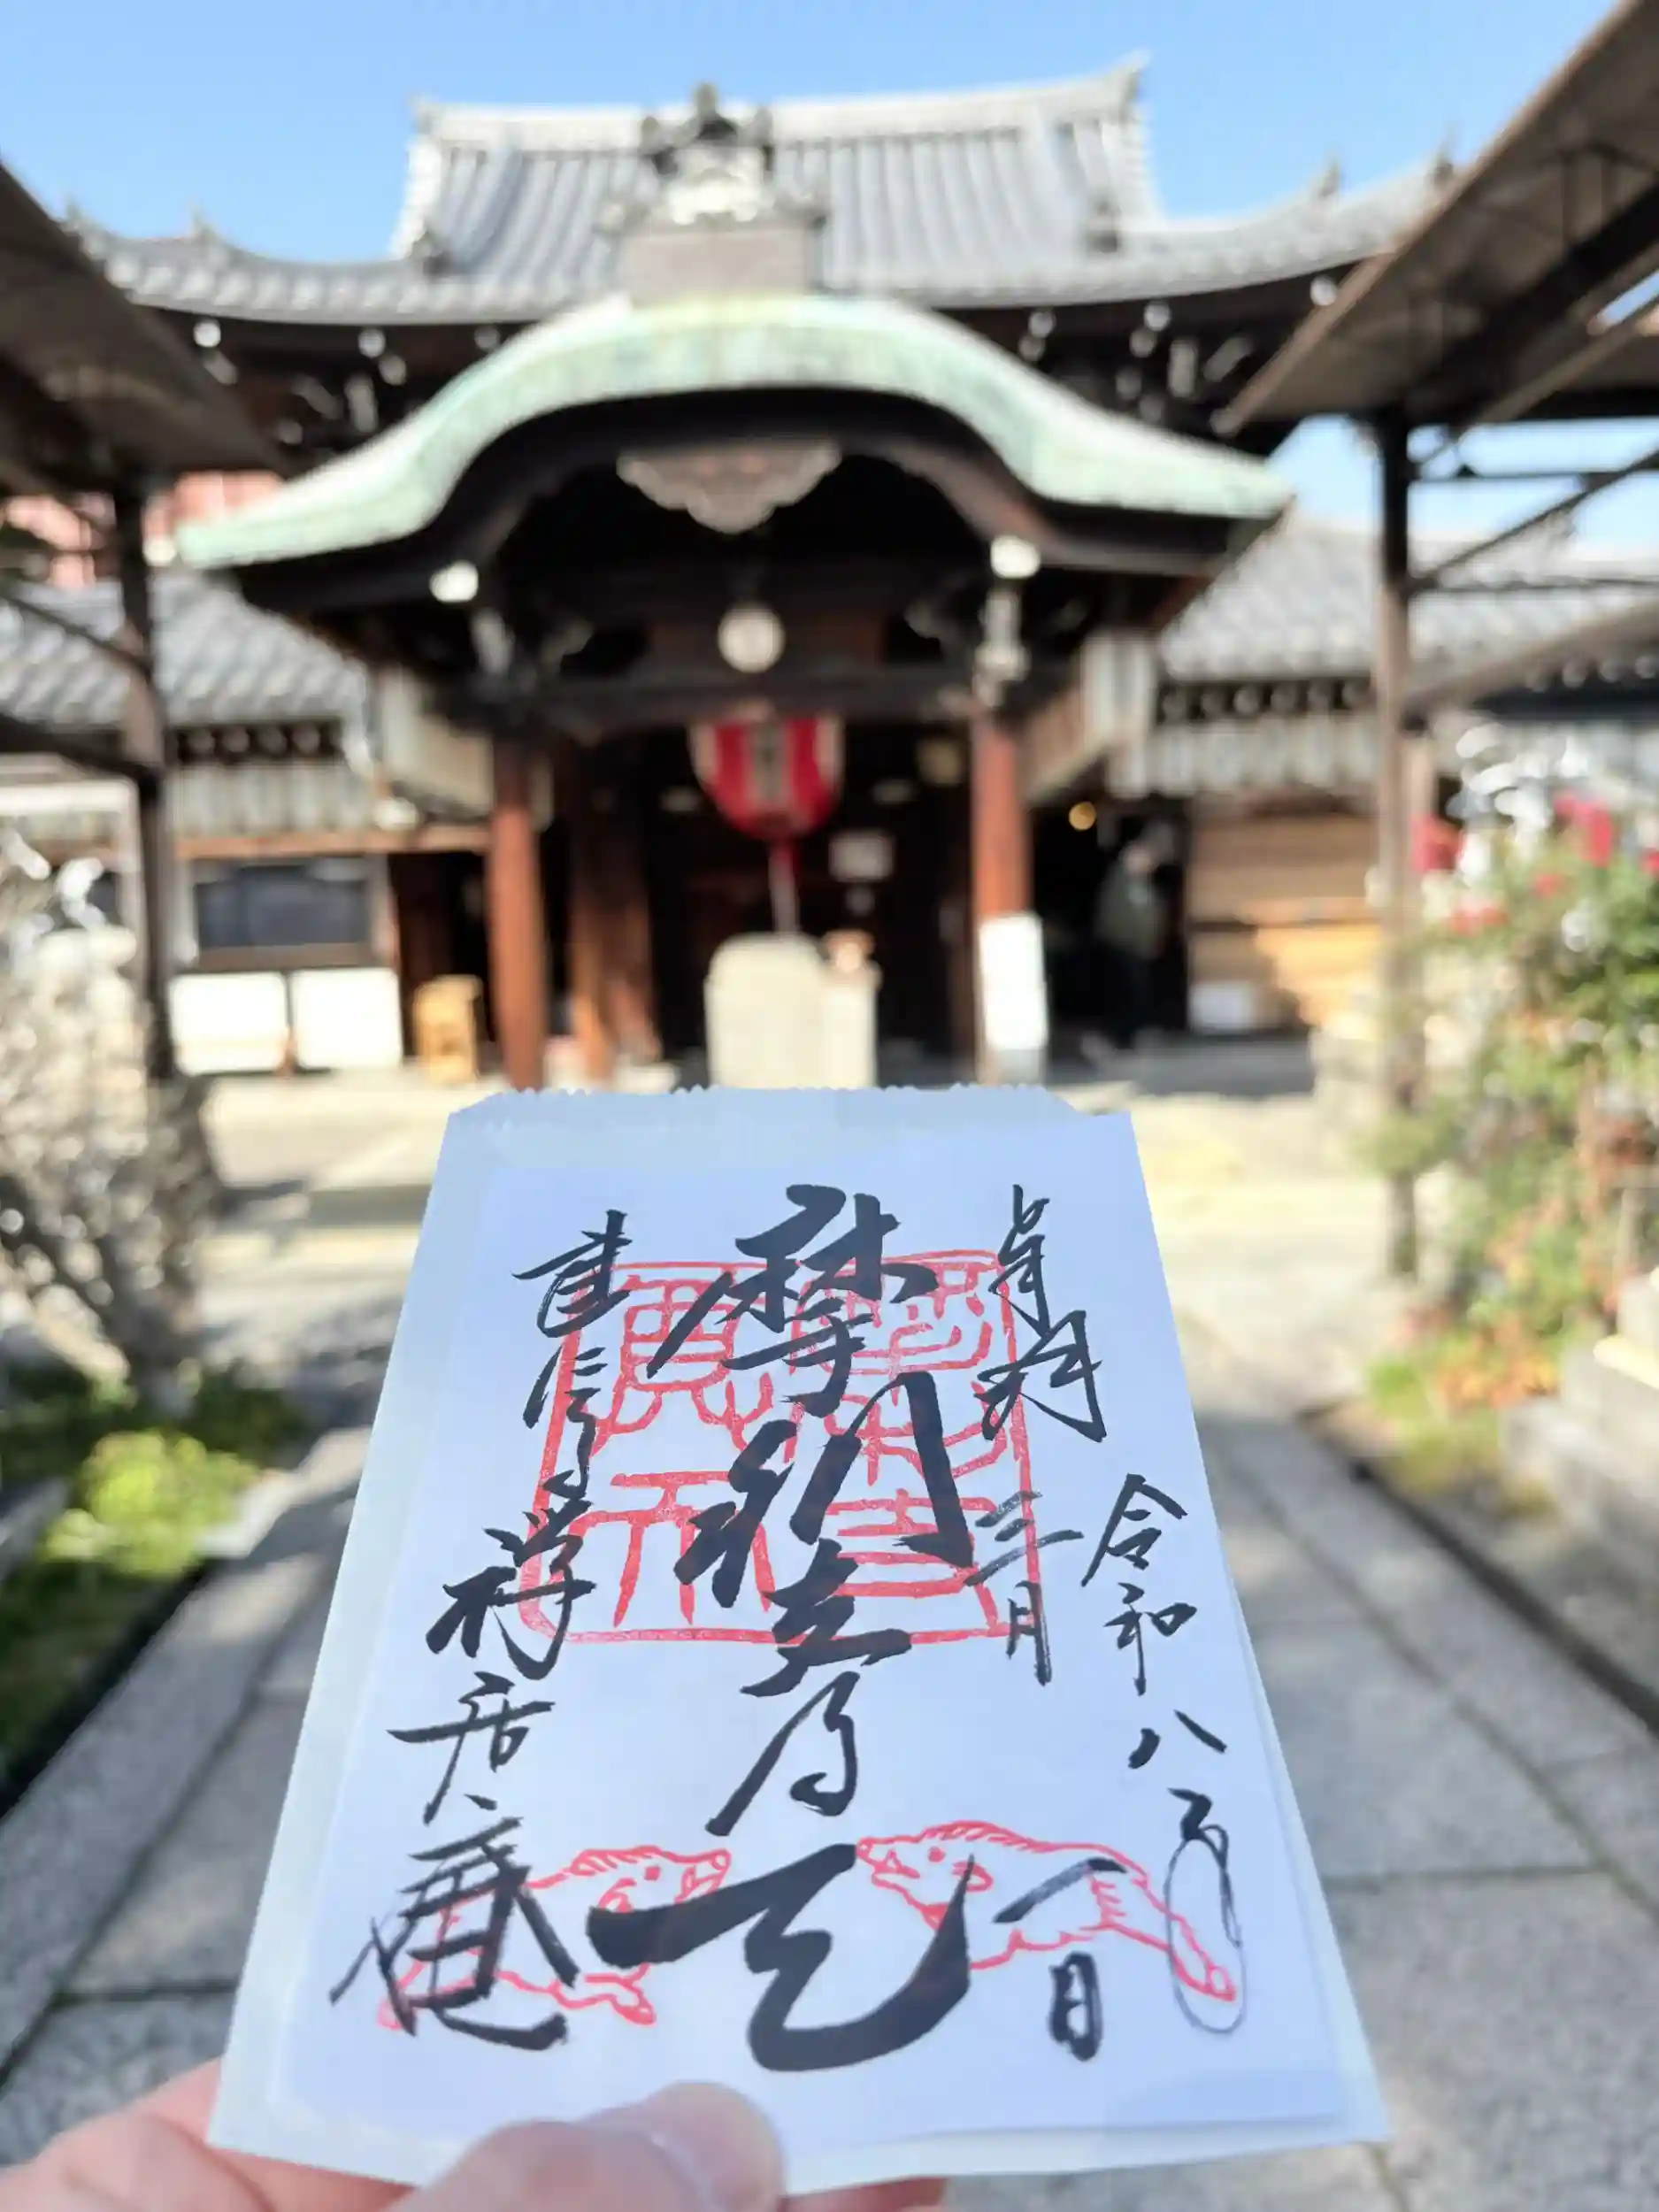 奉拝
令和八年
三月
一日
摩利支尊天
建仁寺
禅居庵